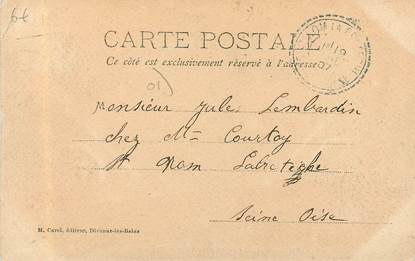 6€
CARTE POSTALE
Ce côté est exclusivement réservé à l'adresse
01
Monsieur Jules Lembardin
chez Mme Courtoy
St Nom Labretèche
Seine Oise
M. Carel, éditeur, Divonne-les-Bains